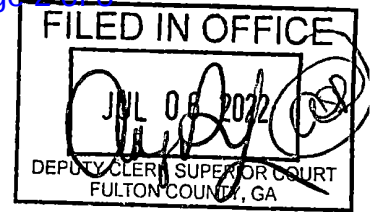 FILED IN OFFICE
JUL 06 2022
DEPUTY CLERK SUPERIOR COURT
FULTON COUNTY, GA